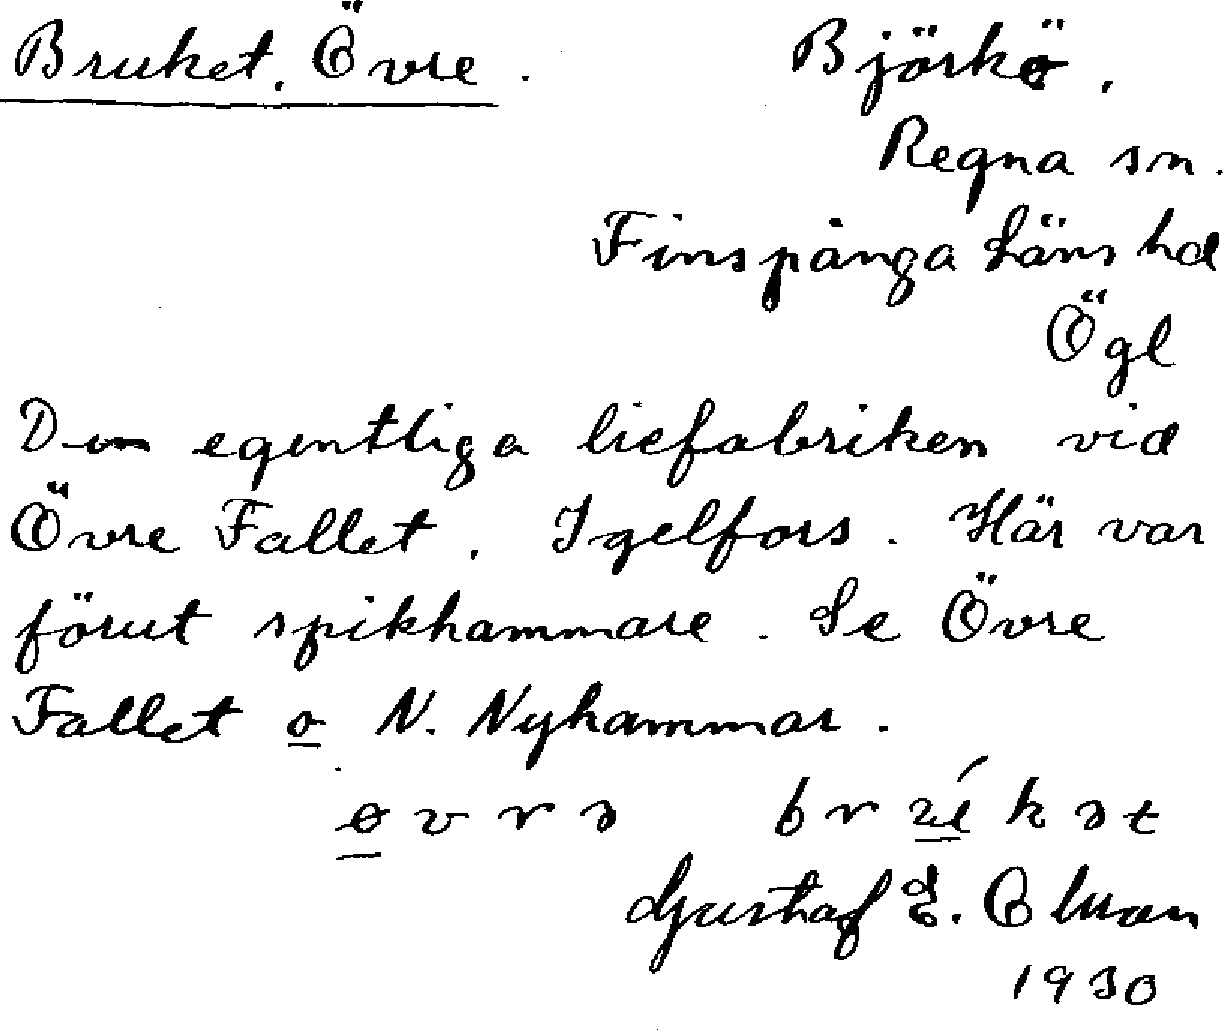 Bruket, Övre. Björkö,
Regna sn.
Finspånga läns hd
Ögl
Den egentliga liefabriken vid
Övre Fallet, Igelfors. Här var
förut spikhammare. Se Övre
Fallet o N. Nyhammar.
Gustaf E.
1930